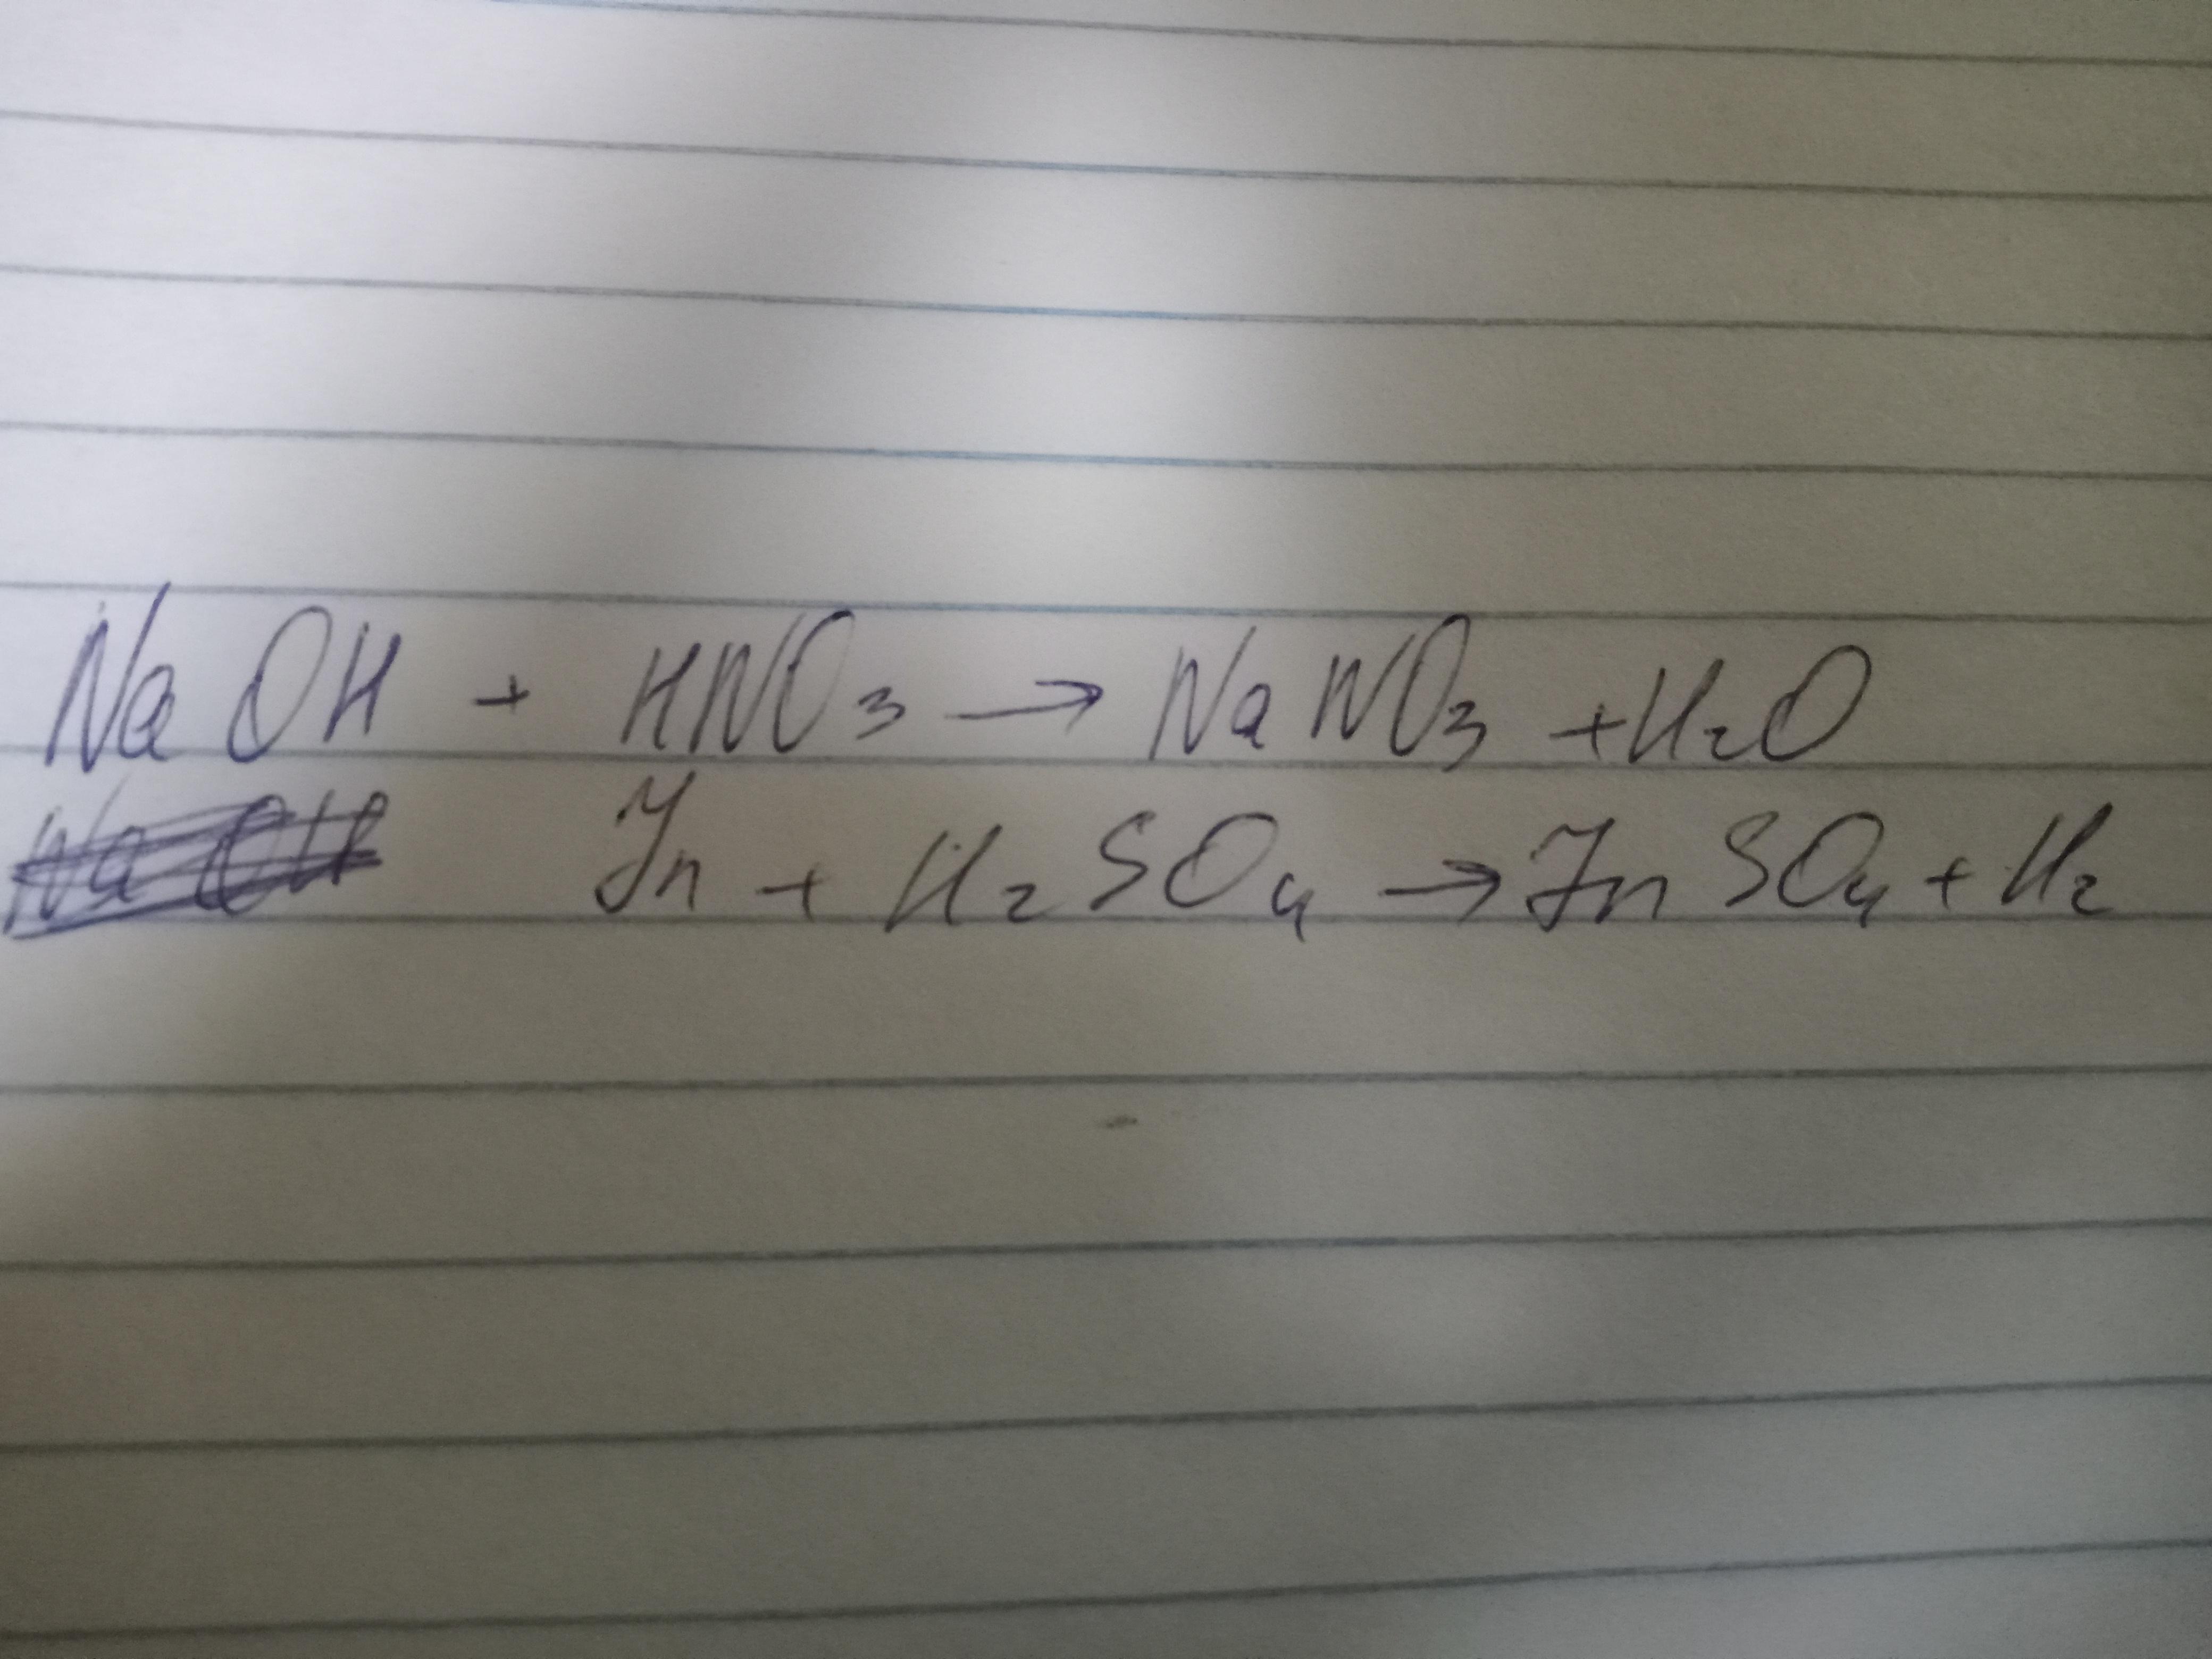 NaOH + HNO₃ → NaNO₃ + H₂O
NaOH Zn + H₂SO₄ → ZnSO₄ + H₂